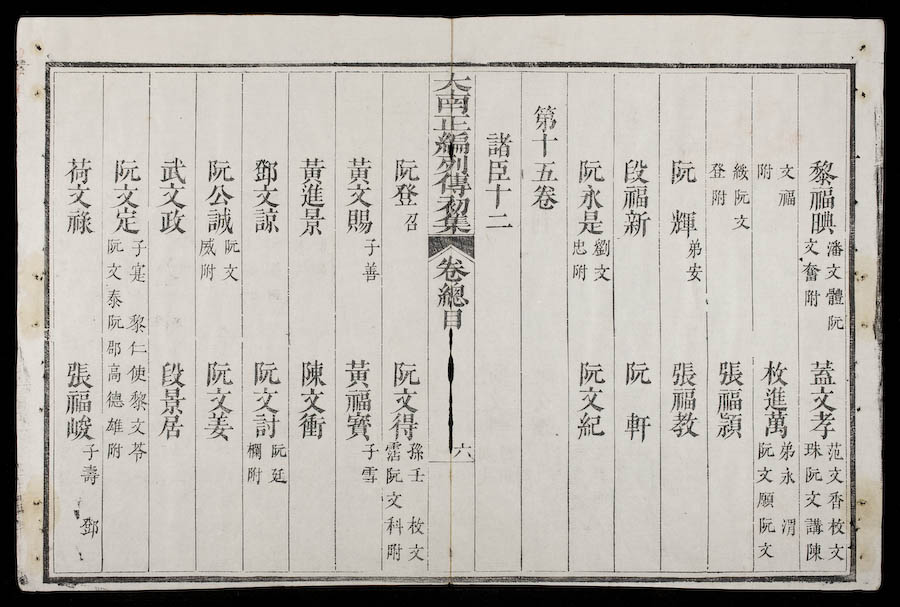 黎福腆 潘文體阮文奮附 蓋文孝 范文香枚文珠阮文講陳
文福附 枚進萬 弟永 渭阮文願阮文
綏阮文登附 張福潁
阮 輝 弟安 張福教
段福新 阮 軒
阮永是 劉文忠附 阮文紀
第十五卷
諸臣十二
大南正編列傳初集 卷總目 六
阮登召 阮文得 孫壬 枚文霑阮文科附
黃文賜 子善 黃福寶 子雪
黃進景 陳文衝
鄧文諒 阮文討 阮廷欄附
阮公誠 阮文威附 阮文姜
武文政 段景居
阮文定 子寔 黎仁使黎文苓阮文泰阮郡高德雄附
荷文祿 張福峻 子壽 鄧